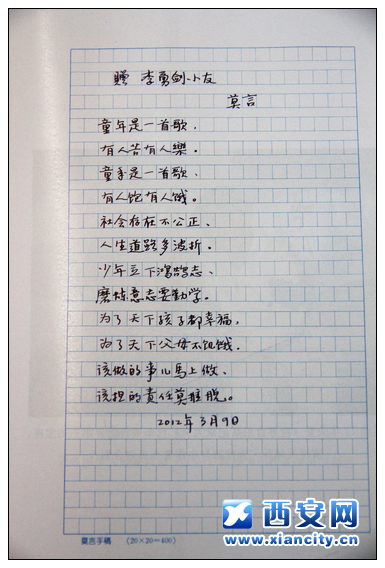 赠 李勇剑小友
莫言
童年是一首歌，
有人苦有人樂。
童年是一首歌、
有人饱有人饿。
社会存在不公正、
人生道路多波折。
少年立下鸿鹄志、
磨炼意志要勤学。
为了天下孩子都幸福，
为了天下父母不饥饿.
该做的事儿馬上做、
该担的责任莫推脱。
2012年3月9日
莫言手稿 (20×20=400)
西安网
www.xiancity.cn